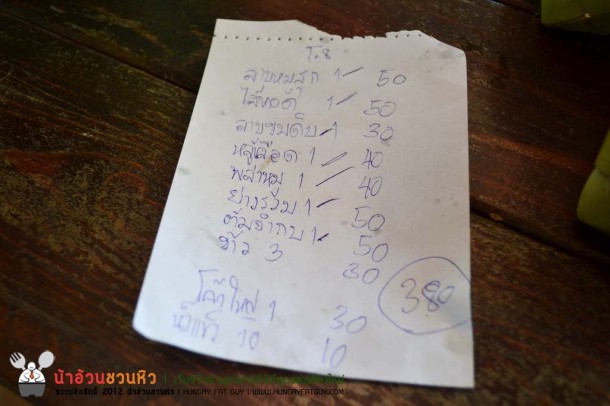 T.8
ลาบหมูสุก 1 50
ไส้ทอด 1 50
ลาบขมดิบ 1 30
หลู้เลือด 1 40
พล่าหมู 1 40
ย่างรวม 1 50
ต้มยำกบ 1 50
ข้าว 3 30
380
โค้กใหญ่ 1 30
น้ำแข็ง 10 10
น้าอ้วนชวนหิว
สงวนลิขสิทธิ์ 2012 น้าอ้วนชวนหิว | HUNGRY FAT GUY | WWW.HUNGRYFATGUY.COM